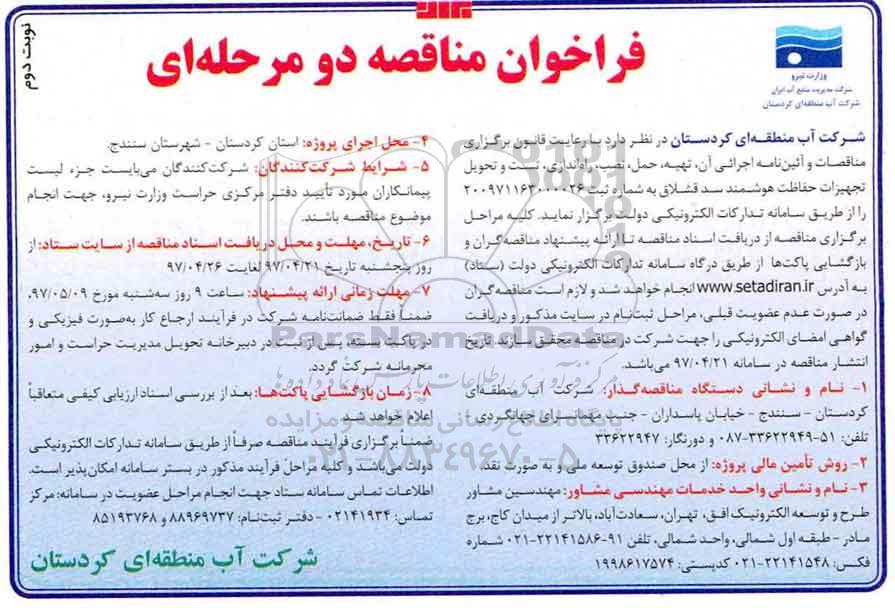 نوبت دوم
فراخوان مناقصه دو مرحله‌ای
وزارت نیرو
شرکت مدیریت منابع آب ایران
شرکت آب منطقه‌ای کردستان
شرکت آب منطقه‌ای کردستان در نظر دارد با رعایت قانون برگزاری
مناقصات و آئین‌نامه اجرائی آن، تهیه، حمل، نصب، راه‌اندازی، تست و تحویل
تجهیزات حفاظت هوشمند سد قشلاق به شماره ثبت ۲۰۰۹۷۱۱۶۳۰۰۰۰۲۶
را از طریق سامانه تدارکات الکترونیکی دولت برگزار نماید. کلیه مراحل
برگزاری مناقصه از دریافت اسناد مناقصه تا ارائه پیشنهاد مناقصه‌گران و
بازگشایی پاکت‌ها از طریق درگاه سامانه تدارکات الکترونیکی دولت (ستاد)
به آدرس www.setadiran.ir انجام خواهد شد و لازم است مناقصه‌گران
در صورت عدم عضویت قبلی، مراحل ثبت‌نام در سایت مذکور و دریافت
گواهی امضای الکترونیکی را جهت شرکت در مناقصه محقق سازند. تاریخ
انتشار مناقصه در سامانه ۹۷/۰۴/۲۱ می‌باشد.
۱- نام و نشانی دستگاه مناقصه‌گذار: شرکت آب منطقه‌ای
کردستان - سنندج - خیابان پاسداران - جنب مهمانسرای جهانگردی -
تلفن: ۵۱-۳۳۶۲۲۹۴۹-۰۸۷ و دورنگار: ۳۳۶۲۲۹۴۷
۲- روش تأمین مالی پروژه: از محل صندوق توسعه ملی و به صورت نقد.
۳- نام و نشانی واحد خدمات مهندسی مشاور: مهندسین مشاور
طرح و توسعه الکترونیک افق، تهران، سعادت‌آباد، بالاتر از میدان کاج، برج
مادر - طبقه اول شمالی، واحد شمالی، تلفن ۹۱-۲۲۱۴۱۵۸۶-۰۲۱ شماره
فکس: ۲۲۱۴۱۵۴۸-۰۲۱ کدپستی: ۱۹۹۸۶۱۷۵۷۴
۴- محل اجرای پروژه: استان کردستان - شهرستان سنندج.
۵- شرایط شرکت‌کنندگان: شرکت‌کنندگان می‌بایست جزء لیست
پیمانکاران مورد تأیید دفتر مرکزی حراست وزارت نیرو، جهت انجام
موضوع مناقصه باشند.
۶- تاریخ، مهلت و محل دریافت اسناد مناقصه از سایت ستاد: از
روز پنجشنبه تاریخ ۹۷/۰۴/۲۱ لغایت ۹۷/۰۴/۲۶
۷- مهلت زمانی ارائه پیشنهاد: ساعت ۹ روز سه‌شنبه مورخ ۹۷/۰۵/۰۹.
ضمناً فقط ضمانت‌نامه شرکت در فرآیند ارجاع کار به‌صورت فیزیکی و
در پاکت بسته، پس از ثبت در دبیرخانه تحویل مدیریت حراست و امور
محرمانه شرکت گردد.
۸- زمان بازگشایی پاکت‌ها: بعد از بررسی اسناد ارزیابی کیفی متعاقباً
اعلام خواهد شد.
ضمناً برگزاری فرآیند مناقصه صرفاً از طریق سامانه تدارکات الکترونیکی
دولت می‌باشد و کلیه مراحل فرآیند مذکور در بستر سامانه امکان‌پذیر است.
اطلاعات تماس سامانه ستاد جهت انجام مراحل عضویت در سامانه: مرکز
تماس: ۰۲۱۴۱۹۳۴ - دفتر ثبت‌نام: ۸۸۹۶۹۷۳۷ و ۸۵۱۹۳۷۶۸
شرکت آب منطقه‌ای کردستان
ParsNamadData
پایگاه اطلاع رسانی مناقصه و مزایده
۰۲۱-۸۸۳۴۹۶۷۰-۵